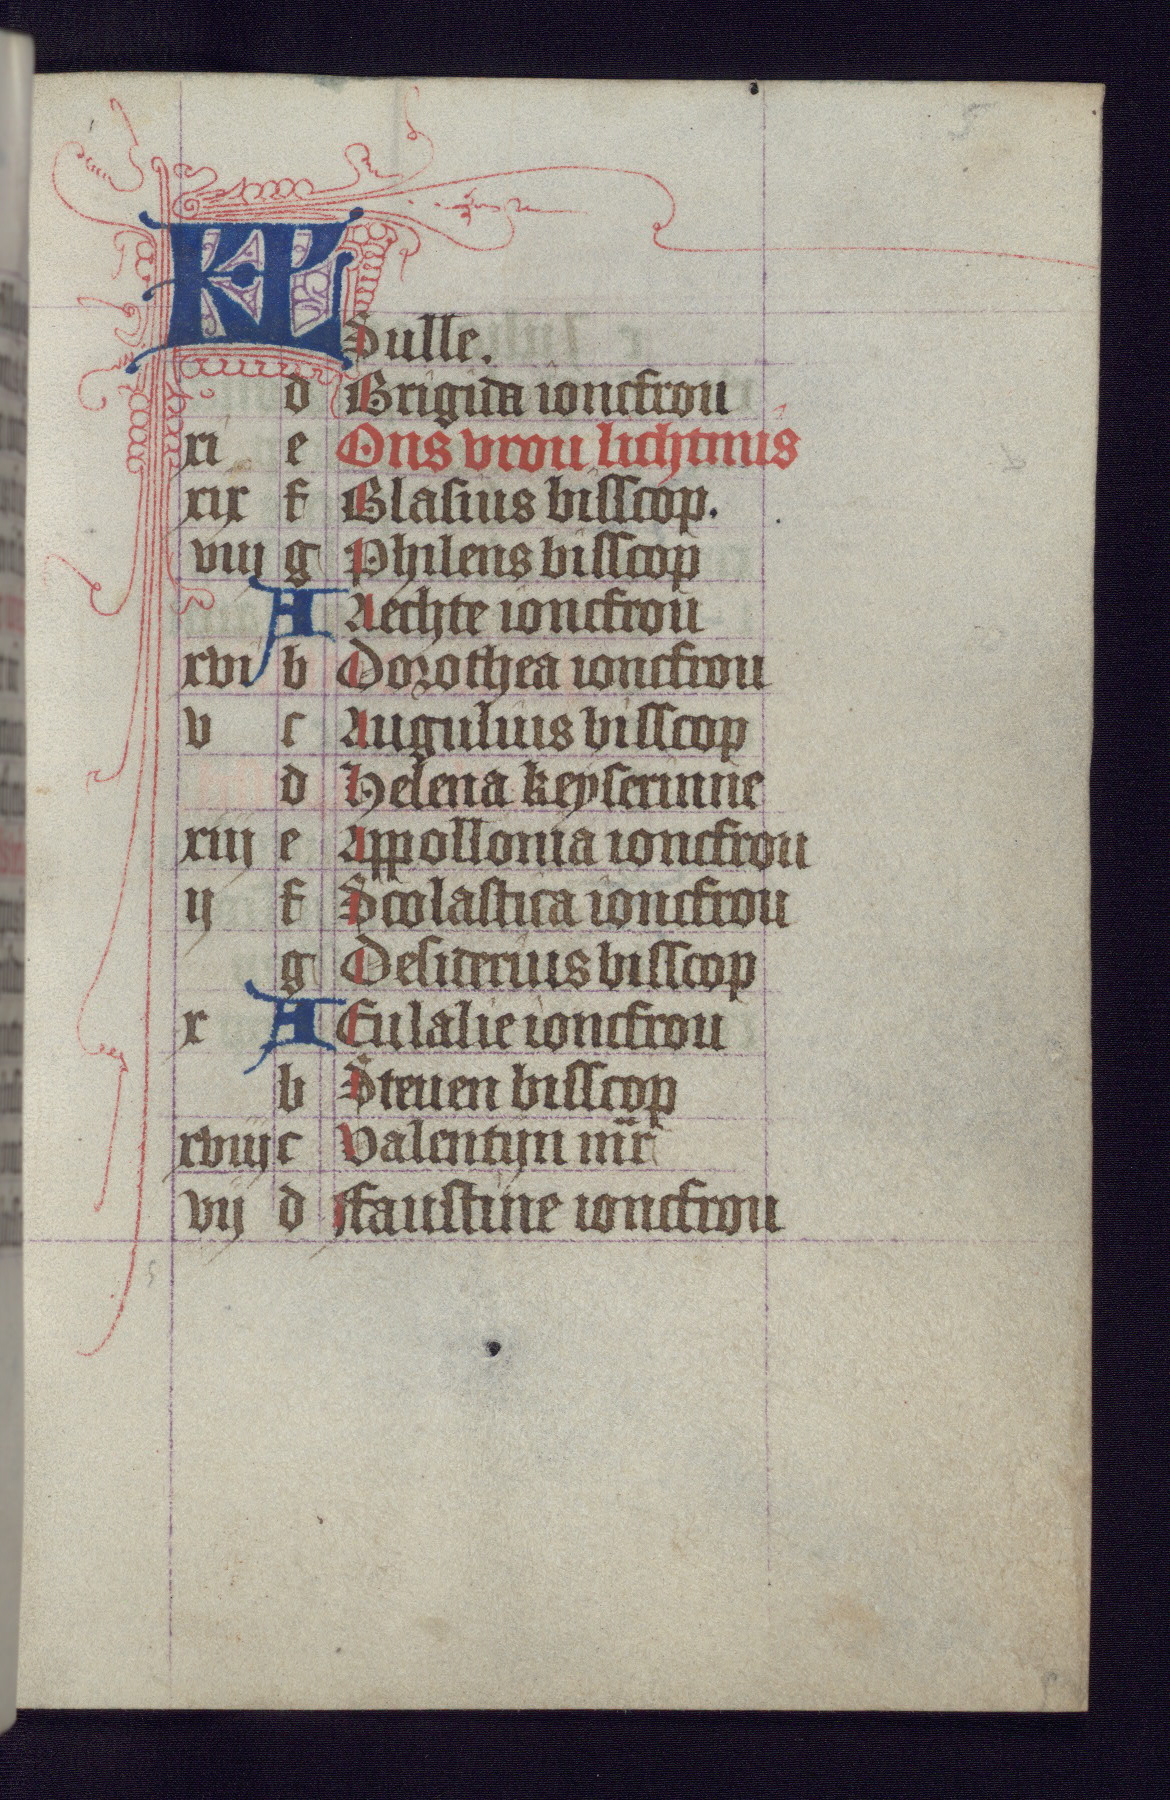 KL
Sulle.
d Brigida ioncfrou
xi e Ons vrou lichtmis
xix f Blasius bisscop.
viij g Phileus bisscop
A Aechte ioncfrou
xvi b Dorothea ioncfrou
v c Augulius bisscop
d Helena keyserinne
xiij e Appollonia ioncfrou
ij f Scolastica ioncfrou
g Desiderius bisscop
x A Eulalie ioncfrou
b Steuen bisscop
xviij c Valentijn mr
vij d Ffaustine ioncfrou